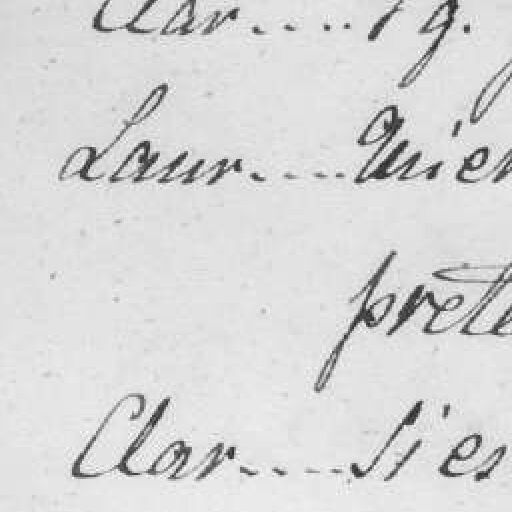 Clar.....
Laur..... Quien
prete
Clar..... Si es